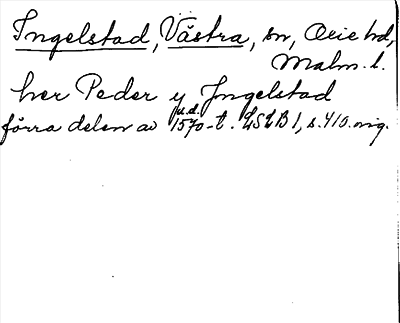 Ingelstad, Västra, sn, Oxie hd,
Malm. l.
her Peder y Jngelstad
u.d.
förra delen av 1570-t. LSLB 1, s. 410. orig.